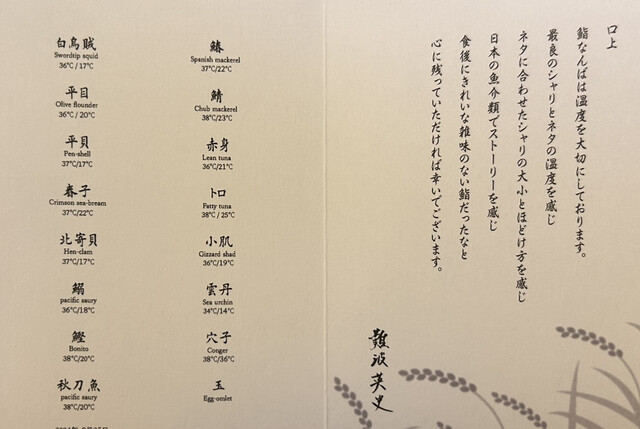 口上
鮨なんばは温度を大切にしております。
最良のシャリとネタの温度を感じ
ネタに合わせたシャリの大小とほどけ方を感じ
日本の魚介類でストーリーを感じ
食後にきれいな雑味のない鮨だったなと
心に残っていただければ幸いでございます。
難波英史
白烏賊
Swordtip squid
36℃/17℃
平目
Olive flounder
36℃/20℃
平貝
Pen-shell
37℃/17℃
春子
Crimson sea-bream
37℃/22℃
北寄貝
Hen-clam
37℃/17℃
鰯
pacific saury
36℃/18℃
鰹
Bonito
38℃/20℃
秋刀魚
pacific saury
38℃/20℃
鰆
Spanish mackerel
37℃/22℃
鯖
Chub mackerel
38℃/23℃
赤身
Lean tuna
36℃/21℃
トロ
Fatty tuna
38℃/25℃
小肌
Gizzard shad
36℃/19℃
雲丹
Sea urchin
34℃/14℃
穴子
Conger
38℃/36℃
玉
Egg-omlet